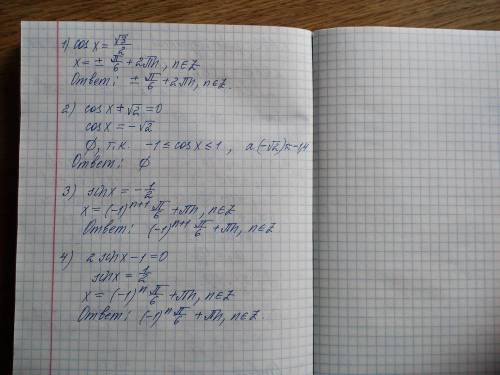 1) cos x = √3/2
x = ± π/6 + 2πn, n∈Z
Ответ: ± π/6 + 2πn, n∈Z.
2) cos x + √2 = 0
cos x = -√2
∅, т.к. -1 ≤ cos x ≤ 1, а (-√2) ≈ -1,4
Ответ: ∅
3) sin x = -1/2
x = (-1)^(n+1) π/6 + πn, n∈Z
Ответ: (-1)^(n+1) π/6 + πn, n∈Z
4) 2 sin x - 1 = 0
sin x = 1/2
x = (-1)^n π/6 + πn, n∈Z
Ответ: (-1)^n π/6 + πn, n∈Z.